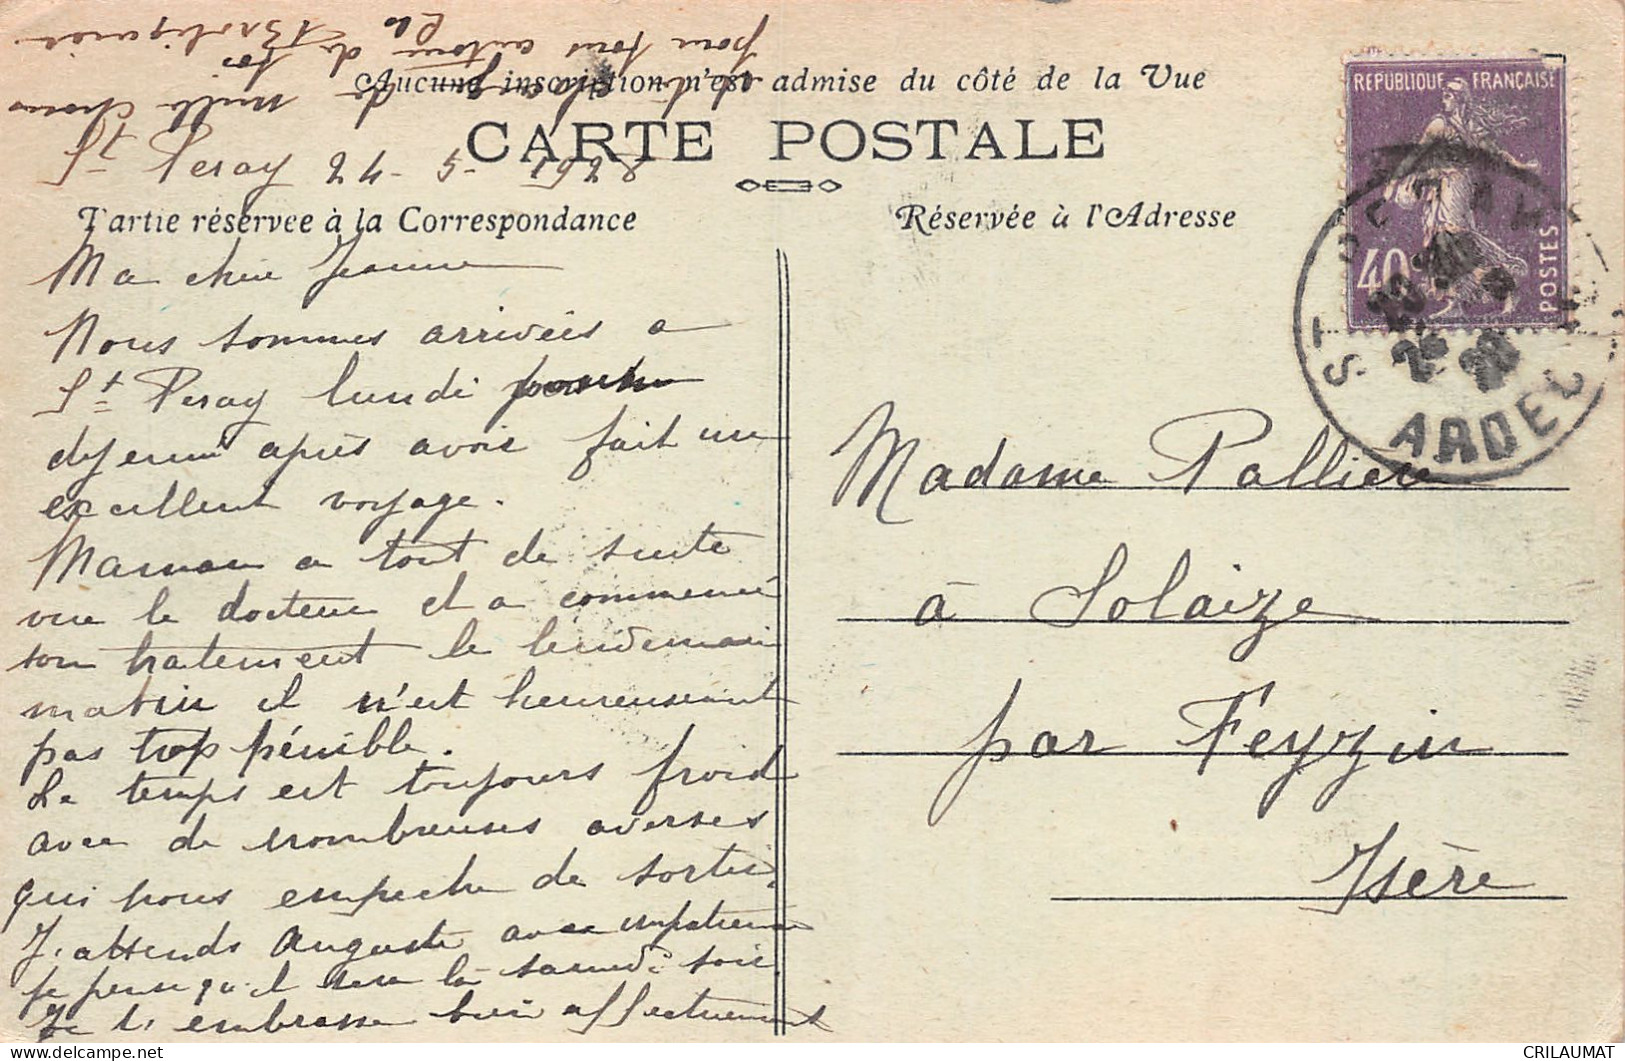 Aucune inscription n'est admise du côté de la Vue
CARTE POSTALE
Sт Peray 24-5-1928
Partie réservée à la Correspondance
Réservée à l'Adresse
Ma chère Jeanne
Nous sommes arrivées a
St Peray lundi pour
dejeuné après avoir fait un
excellent voyage.
Maman a tout de suite
vue le docteur et a commencé
son traitement le lendemain
matin il n'est heureusement
pas trop pénible.
Le temps est toujours froid
avec de nombreuses averses
qui nous empeche de sortir.
J'attends Auguste avec impatience
je pense qu'il sera là samedi soir
Je t'embrasse bien affectueusement
mille choses
pour tous autour de toi
REPUBLIQUE FRANÇAISE
40c
POSTES
ST PERAY
ARDECHE
Madame Pallière
à Solaize
par Feyzin
Isère
CRILAUMAT